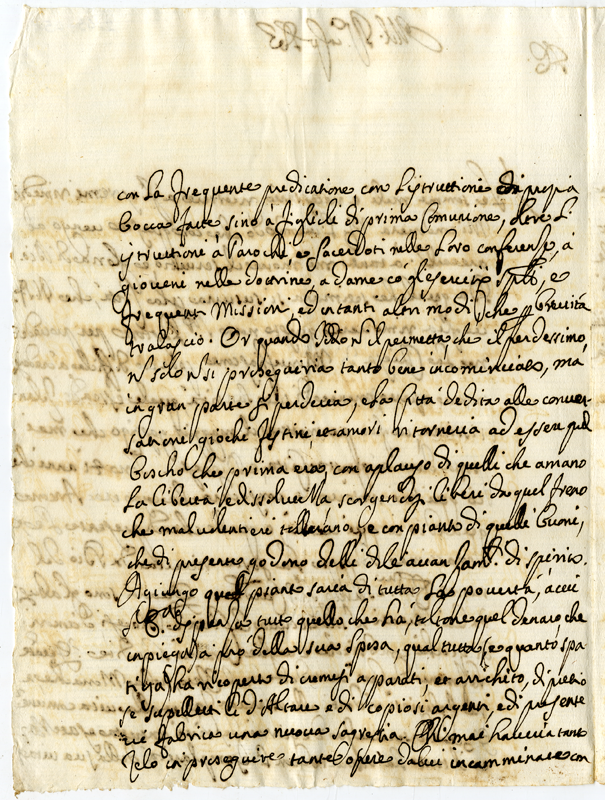 con la frequente predicatione, con l'istruttione di propria
bocca fatte sino à figlioli di prima Comunione, oltre l'i
struttioni à Parochi, e sacerdoti nelle loro conferenze, à
gioveni nelle dottrine, a dame cò gl'esercitij Sp.li, e
frequenti Missioni, ed in tanti altri modi che p brevità
tralascio. Or quando Iddio n il permetta, che il perdessimo,
n solo n si prosequiria tanto bene incominciato, mà
in gran parte si perderia, e la Città dedita alle conver
sationi giochi festini, et amori ritorneria ad essere quel
boscho che prima era, con aplauso di quelli che amano
la libertà, e dissolutezza scorgendosi liberi da quel freno
che malvolentieri tollerano, e con pianto di quelle buoni,
che di presente godono delli di lei avan di spirito.
Agiungo qual pianto saria di tutta la povertà, à cui
dispensa tutto quello che hà, toltone quel denaro che
inpiega à prò della sua sposa, qual tutto e quanto spa
ti hà ricoperto di cremesi apparati, et arrichito, di pretio
se supelletili d'Altare e di copiosi argenti, e di presente
vi è fabrica una nuova sagrestia. Chi mai haveria tanto
Zelo in proseguire tante opere da lui incamminate con